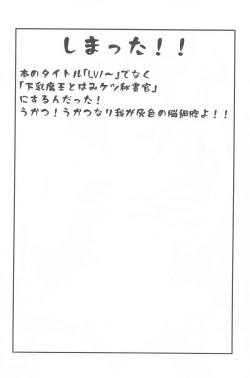 しまった！！
本のタイトル「LV1～」でなく
「下乳魔王とはみケツ秘書官」
にするんだった！
うかつ！うかつなり我が灰色の脳細胞よ！！